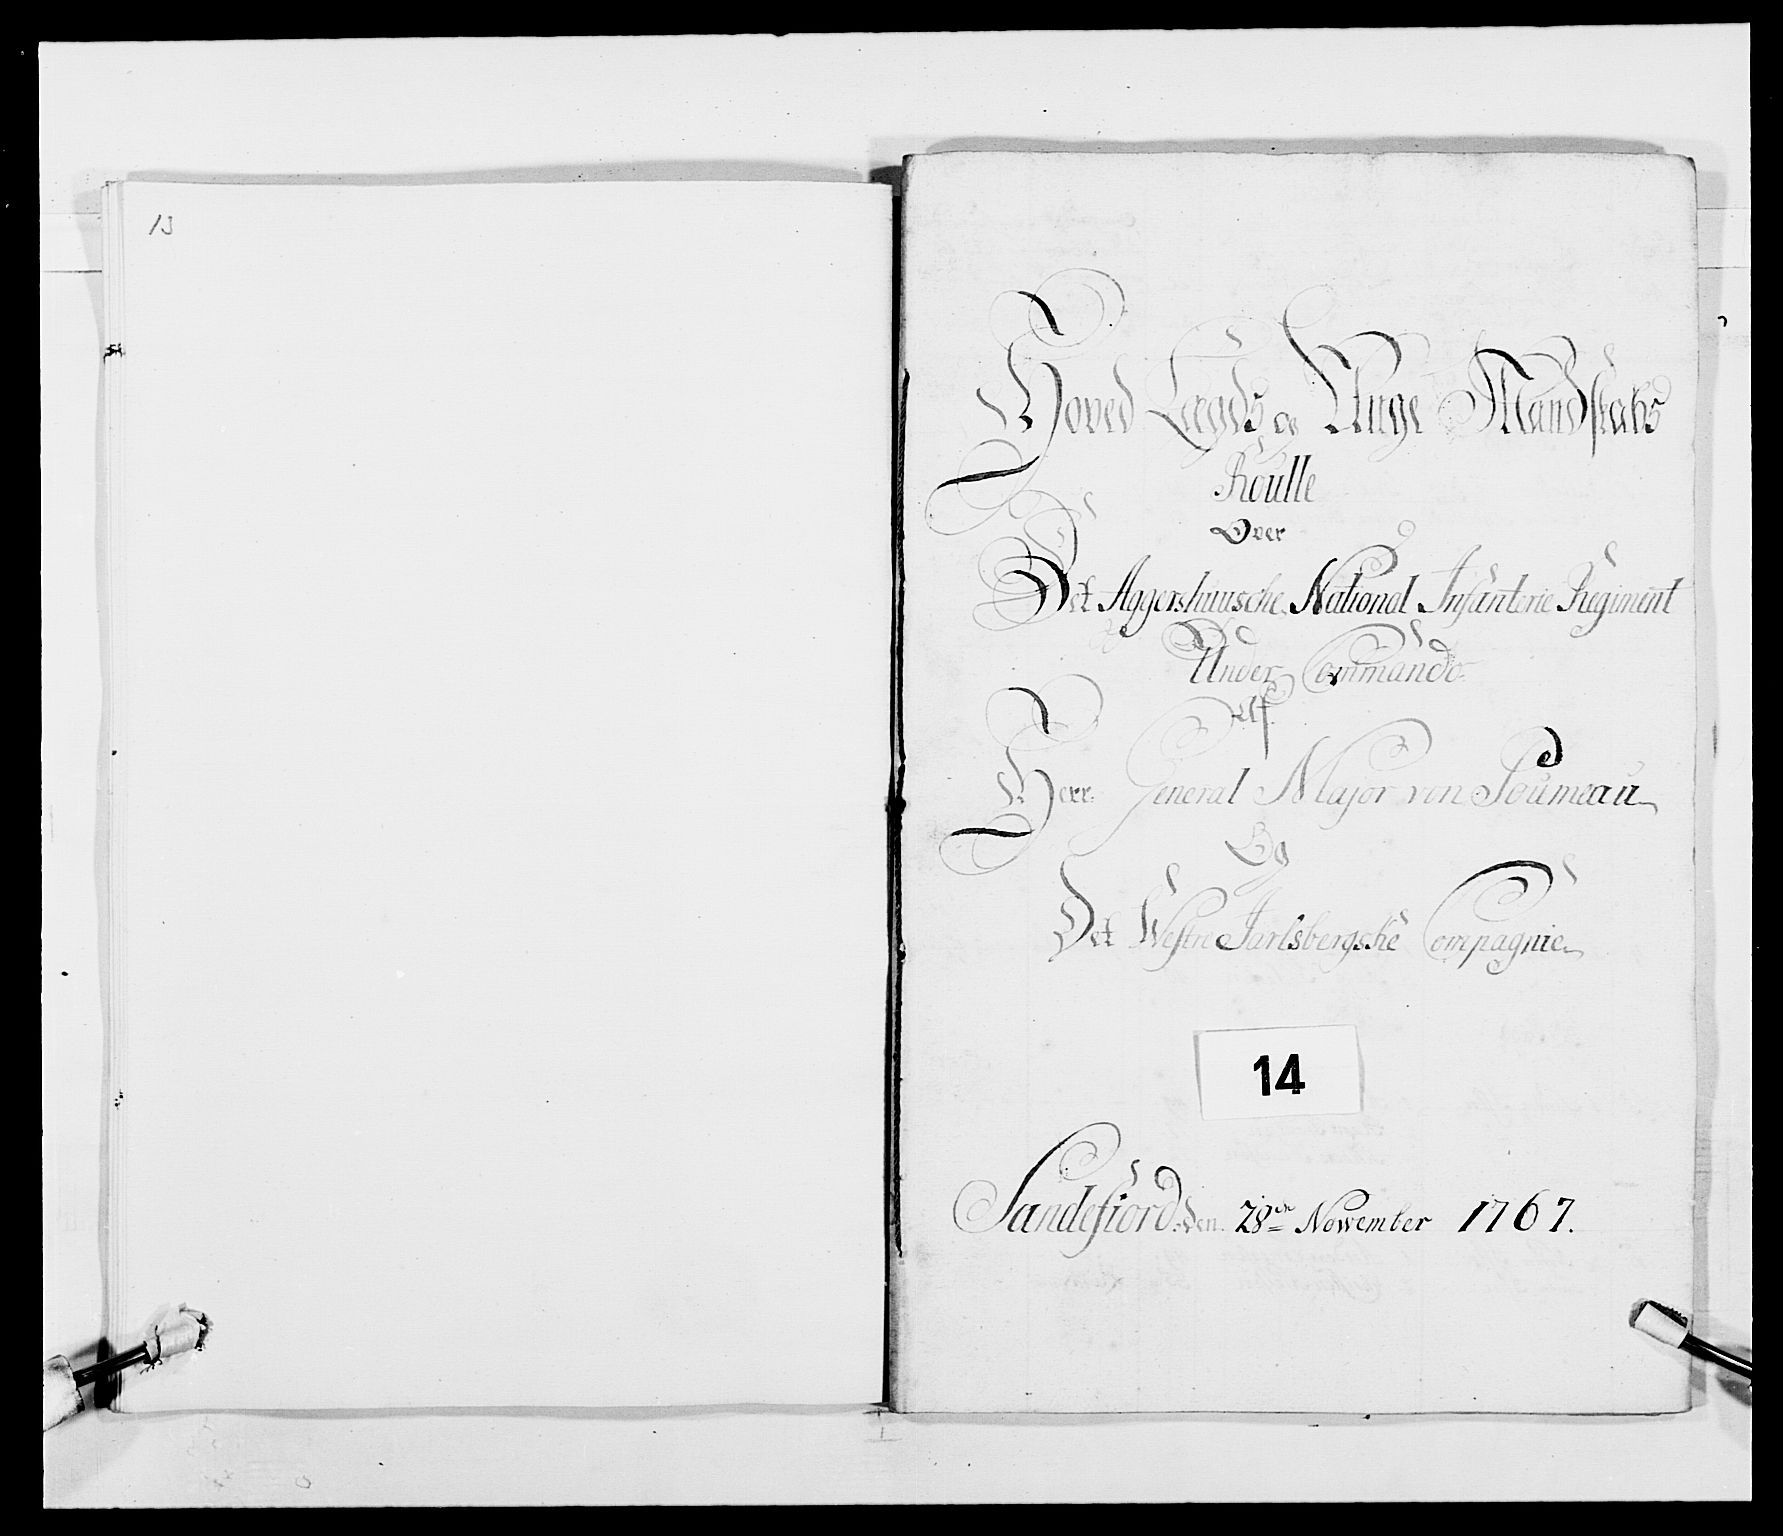 13
Hoved Lægds og Unge Mandskabs
Roulle
Over
Det Aggershuusche National Infanterie Regiment
Under Commando
Af
Herr General Major von Soumeau
Og
Det Westre Jarlsbergske Compagnie
14
Sandefiord den 28de November 1767.